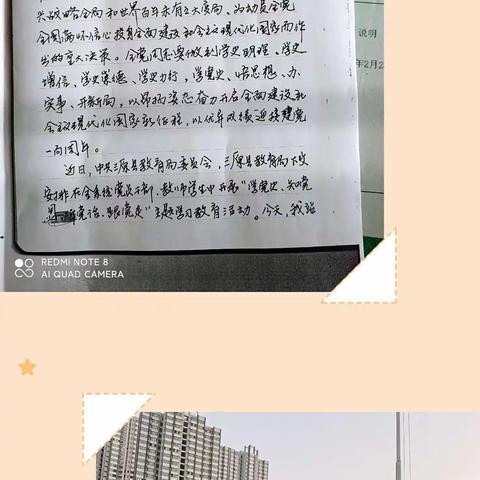 兴战略全局和世界百年未有之大变局、为动员全党
全国满怀信心投身全面建设社会主义现代化国家而作
出的重大决策。全党同志要做到学史明理、学史
增信、学史崇德、学史力行，学党史、悟思想、办
实事、开新局，以昂扬姿态奋力开启全面建设社
会主义现代化国家新征程，以优异成绩迎接建党
一百周年。
近日，中共三原县教育局委员会，三原县教育局下发
安排在全系统党员干部、教师学生中开展“学党史、知党
恩、跟党走”主题学习教育活动。今天，我站
说明
年2月2
REDMI NOTE 8
AI QUAD CAMERA